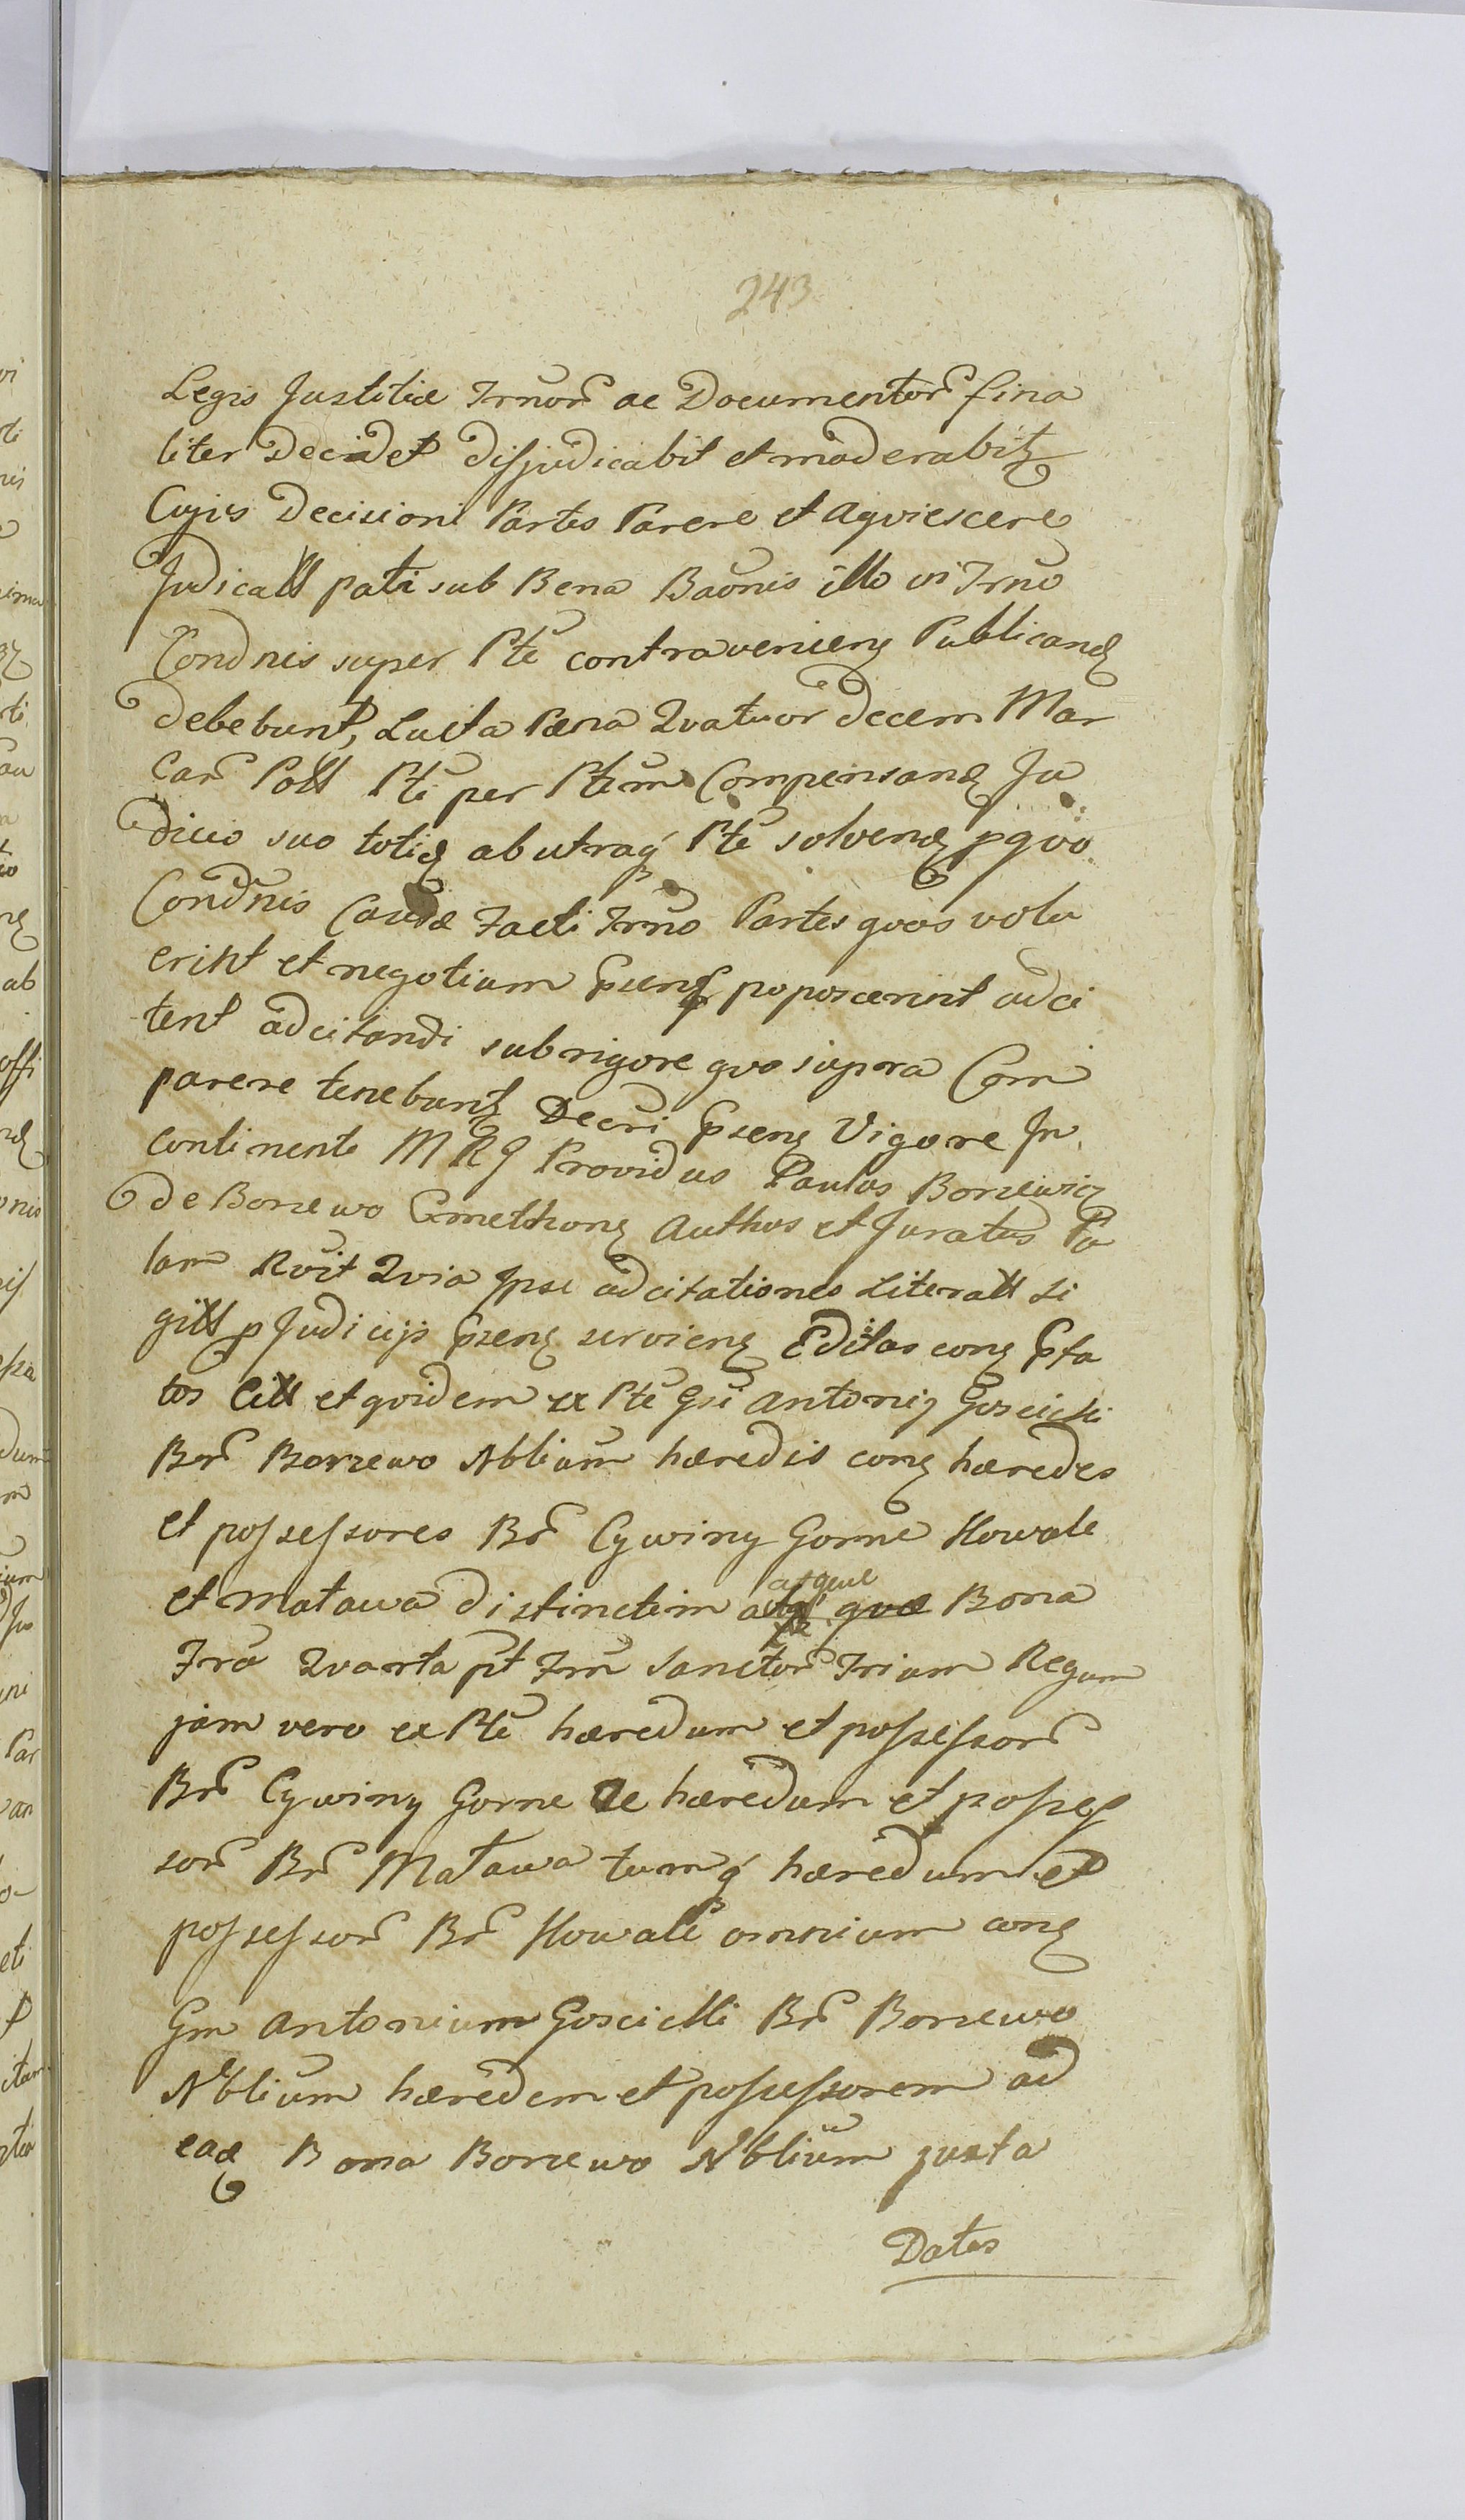 243
Legis Justitiæ Trnor̃ ac Documentor̃ fina
liter Decidet disjudicabit et moderabitꝫ
Cujus Decisioni Partes Parere et aqviescere
Judicatt pati sub Bena Baõnis illo in Trño
Condnis super Pte contraveniens Publicand
debebunt, Lucta Pæna Qvatuor decem Mar
car̃ Poll Pti per Ptem Compensand Ju
dicio suo toties ab utraq́ Pte solvend p qvo
Condñis Causæ Facti Trño Partes qvas volu
erint et negotium pseng poposcerint adci
tent adcitandi sub rigore qvo supra Com
parere tenebunt Decri pseng Vigore In
continenti MRG Providus Paulus Borzewicz
de Borzewo Cmethong Authos et Juratus Pa
lam Rvit Qvia Ipse adcitationes Literatt Si
gill p Judicijs pseng serviens Editas cong Pta
tos Citt et qvidem ex Pte Gsi Antonij Goscicki
Br̃ Borzewo Nblium hæredis cong hæredes
et possessores Br̃ Cywiny Gorne Howale
et Matawa distinctim atq́ qvæ Bona
Fra Qvarta pt Frm Sanctor̃ Trium Regum
jam vero ex Pte hæredum et possessor̃
Br̃ Cywiny Gorne ac hæredum et posses
sor̃ Br̃ Matawa tumq́ hæredum et
possessor̃ Br̃ Howale omnium cong
Gm Antonium Goscicki Br̃ Borzewo
Nblium hæredem et possessorem ad
ead Bona Borzewo Nblium juxta
Dates